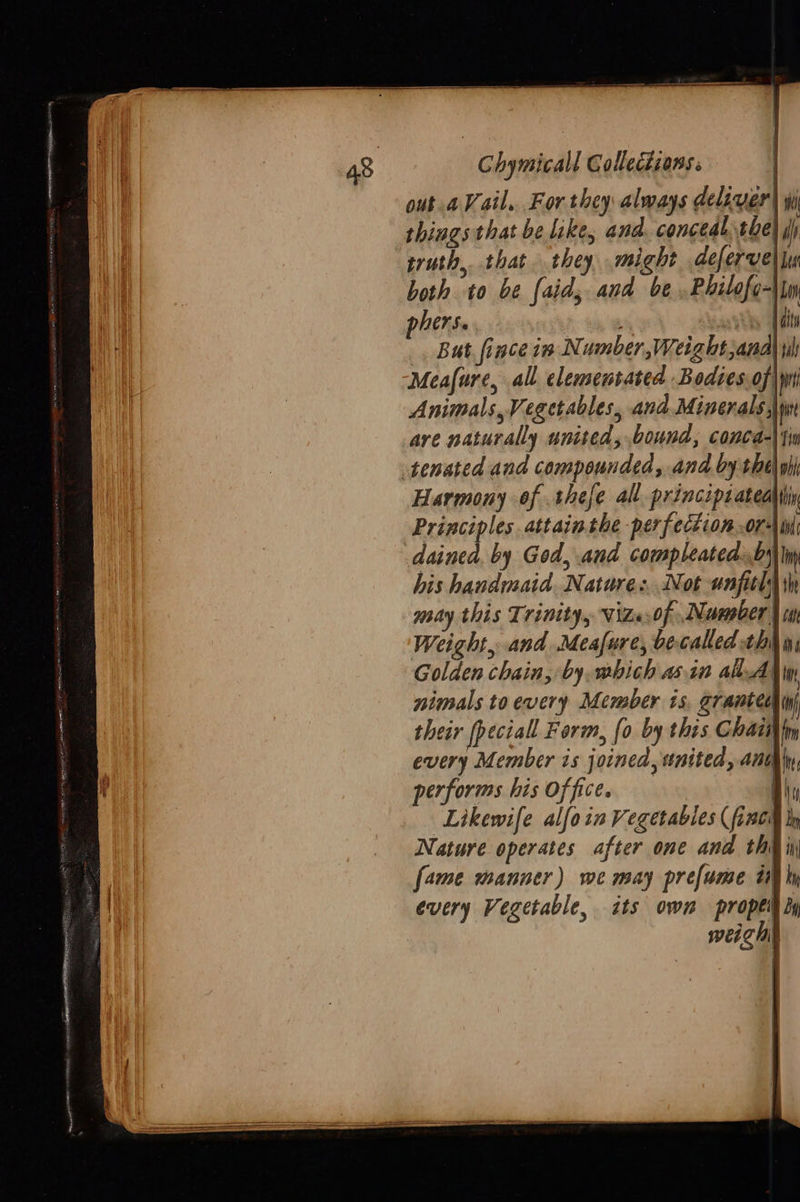 48 Chymicall Collections.
out a Vail. For they always deliver
things that be like, and conceal the
truth, that they might deſerve
both to be ſaid, and be Philoſo-
phers.
But ſince in Number, Weight, and
Meaſure, all elementated Bodies of
Animals, Vegetables, and Minerals,
are naturally united, bound, conca-
tenated and compounded, and by the
Harmony of theſe all principiated
Principles attain the perfection or-
dained by God, and compleated by
his handmaid Nature: Not unfitly
may this Trinity, viz. of Number
Weight, and Meaſure, be called
Golden chain, by which as in all A
nimals to every Member is granted
their ſpeciall Form, ſo by this Chain
every Member is joined, united, and
performs his Office.
Likewiſe alſo in Vegetables (ſince
Nature operates after one and
ſame manner) we may preſume in
every Vegetable, its own proper
weigh